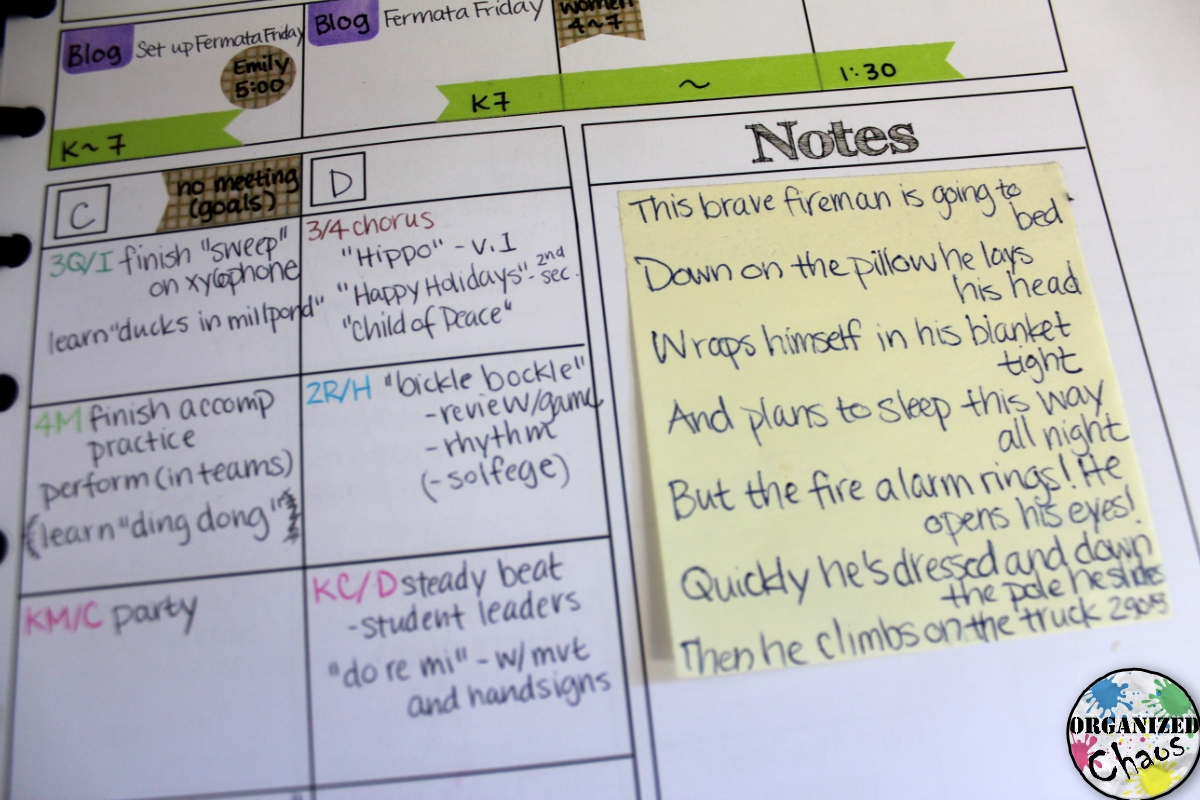 Blog Set up Fermata Friday
Emily
5:00
K~7
Blog Fermata Friday
women
4~7
K7 ~ 1:30
C
no meeting
(goals)
3Q/I finish "sweep"
on xylophone
learn "ducks in millpond"
4M finish accomp
practice
perform (in teams)
(learn "ding dong")
KM/C party
D
3/4 chorus
"Hippo" - v. I
"Happy Holidays" - 2nd
sec.
"Child of Peace"
2R/H "bickle bockle"
- review/game
- rhythm
(- solfege)
KC/D steady beat
- student leaders
"do re mi" - w/ mvt
and handsigns
Notes
This brave fireman is going to
bed.
Down on the pillow he lays
his head
Wraps himself in his blanket
tight
And plans to sleep this way
all night
But the fire alarm rings! He
opens his eyes!
Quickly he's dressed and down
the pole he slides
Then he climbs on the truck
ORGANIZED
Chaos